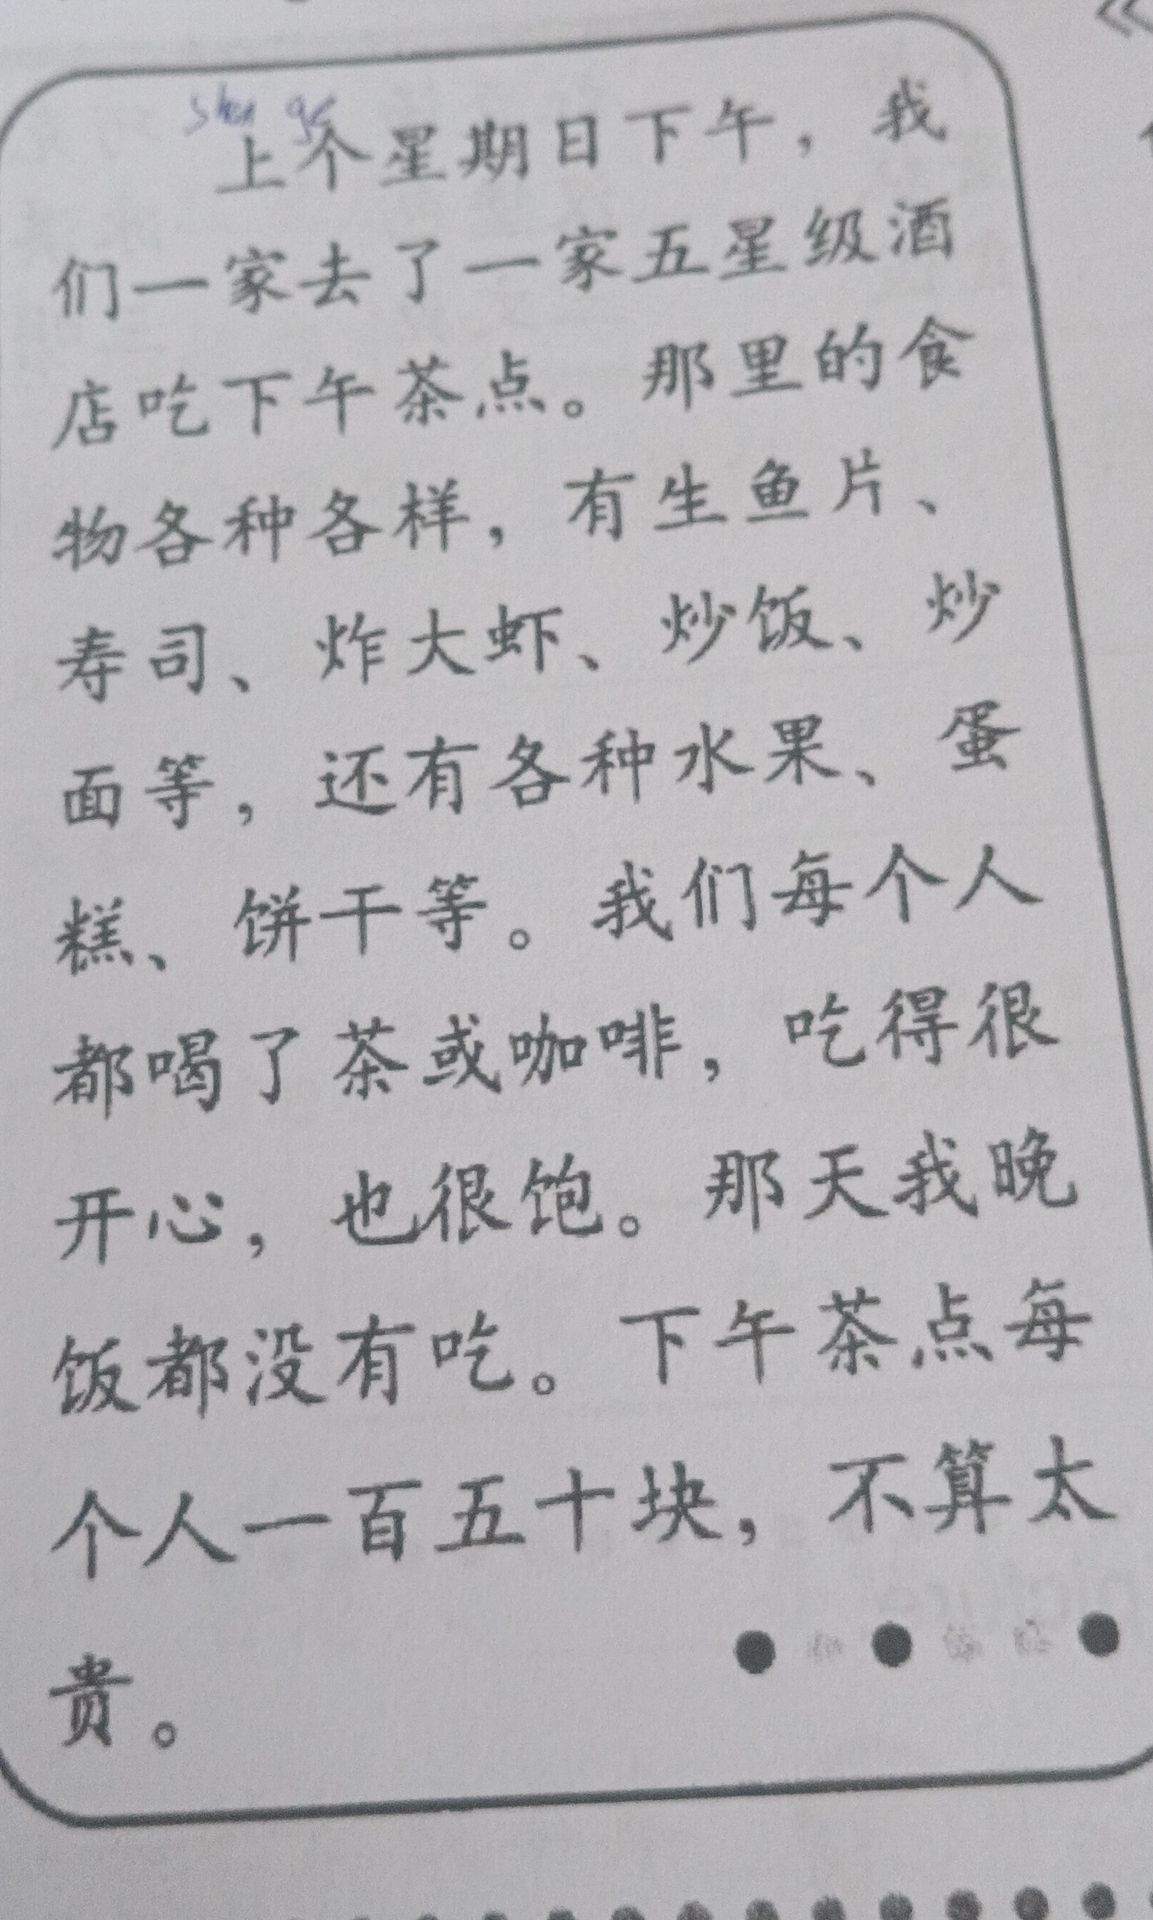 shan ge
上个星期日下午，我
们一家去了一家五星级酒
店吃下午茶点。那里的食
物各种各样，有生鱼片、
寿司、炸大虾、炒饭、炒
面等，还有各种水果、蛋
糕、饼干等。我们每个人
都喝了茶或咖啡，吃得很
开心，也很饱。那天我晚
饭都没有吃。下午茶点每
个人一百五十块，不算太
贵。